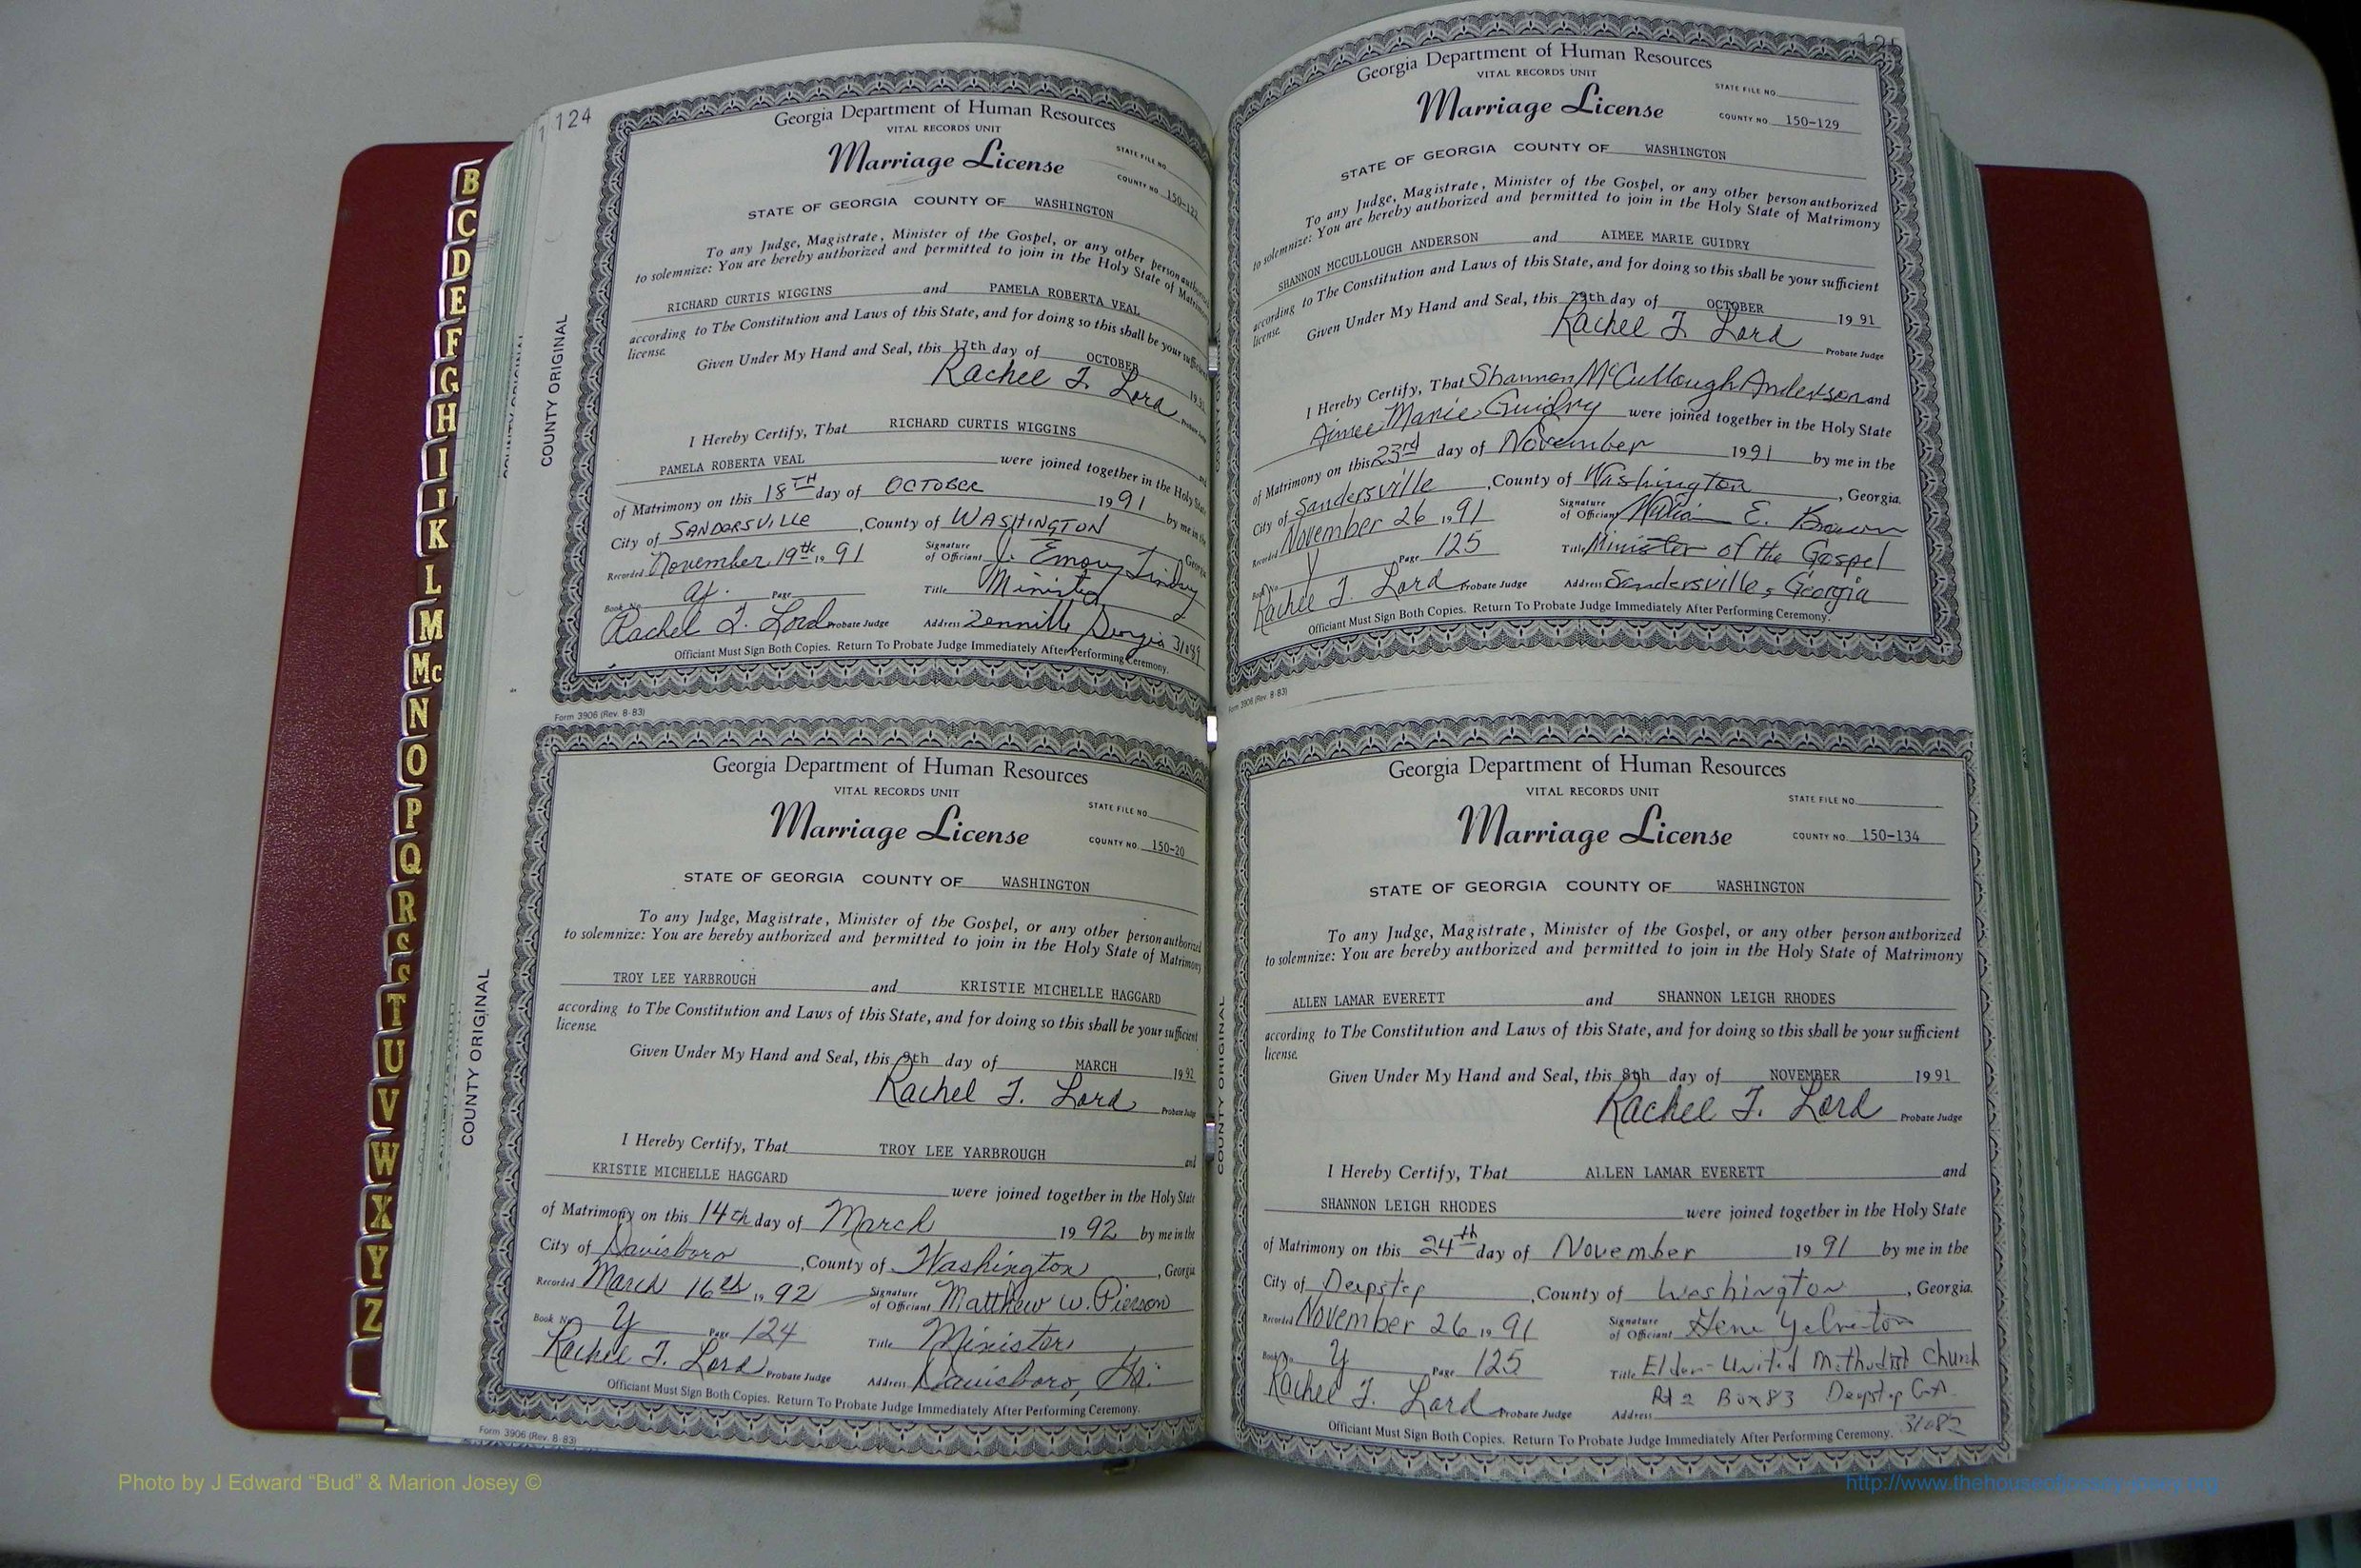 B
C
D
E
F
G
H
I
K
L
M
Mc
N
O
P
Q
R
S
T
U
V
W
X
Y
Z
124
COUNTY ORIGINAL
Georgia Department of Human Resources
VITAL RECORDS UNIT
Marriage License
STATE FILE NO.
COUNTY NO.
STATE OF GEORGIA COUNTY OF WASHINGTON
To any Judge, Magistrate, Minister of the Gospel, or any other person
to solemnize: You are hereby authorized and permitted to join in the Holy State of Matrimony
RICHARD CURTIS WIGGINS and PAMELA ROBERTA VEAL
according to The Constitution and Laws of this State, and for doing so this shall be your
license.
Given Under My Hand and Seal, this 17th day of OCTOBER
Rachel T. Lord
I Hereby Certify, That RICHARD CURTIS WIGGINS
PAMELA ROBERTA VEAL were joined together in the Holy State
of Matrimony on this 18TH day of OCTOBER 1991 by me in the
City of SANDERSVILLE, County of WASHINGTON Georgia
Recorded November 19th, 1991 Signature of Officiant J. Emory
Book No. Y Page Title Minister
Rachel T. Lord Probate Judge Address Tennille Georgia 31089
Officiant Must Sign Both Copies. Return To Probate Judge Immediately After Performing Ceremony.
Form 3906 (Rev. 8-83)
COUNTY ORIGINAL
Georgia Department of Human Resources
VITAL RECORDS UNIT
Marriage License
STATE FILE NO.
COUNTY NO. 150-20
STATE OF GEORGIA COUNTY OF WASHINGTON
To any Judge, Magistrate, Minister of the Gospel, or any other person authorized
to solemnize: You are hereby authorized and permitted to join in the Holy State of Matrimony
TROY LEE YARBROUGH and KRISTIE MICHELLE HAGGARD
according to The Constitution and Laws of this State, and for doing so this shall be your sufficient
license.
Given Under My Hand and Seal, this 9th day of MARCH 1992
Rachel T. Lord Probate Judge
I Hereby Certify, That TROY LEE YARBROUGH and
KRISTIE MICHELLE HAGGARD were joined together in the Holy State
of Matrimony on this 14th day of March 1992 by me in the
City of Davisboro, County of Washington, Georgia
Recorded March 16th, 1992 Signature of Officiant Matthew W. Pierson
Book No. Y Page 124 Title Minister
Rachel T. Lord Probate Judge Address Davisboro, Ga.
Officiant Must Sign Both Copies. Return To Probate Judge Immediately After Performing Ceremony.
Form 3906 (Rev. 8-83)
Georgia Department of Human Resources
VITAL RECORDS UNIT
Marriage License
STATE FILE NO.
COUNTY NO. 150-129
STATE OF GEORGIA COUNTY OF WASHINGTON
To any Judge, Magistrate, Minister of the Gospel, or any other person authorized
to solemnize: You are hereby authorized and permitted to join in the Holy State of Matrimony
SHANNON MCCULLOUGH ANDERSON and AIMEE MARIE GUIDRY
according to The Constitution and Laws of this State, and for doing so this shall be your sufficient
license.
Given Under My Hand and Seal, this 29th day of OCTOBER 1991
Rachel T. Lord Probate Judge
I Hereby Certify, That Shannon McCullough Anderson and
Aimee Marie Guidry were joined together in the Holy State
of Matrimony on this 23rd day of November 1991 by me in the
City of Sandersville, County of Washington, Georgia.
Recorded November 26, 1991 Signature of Officiant William E. Brown
Book No. Y Page 125 Title Minister of the Gospel
Rachel T. Lord Probate Judge Address Sandersville, Georgia
Officiant Must Sign Both Copies. Return To Probate Judge Immediately After Performing Ceremony.
Form 3906 (Rev. 8-83)
COUNTY ORIGINAL
Georgia Department of Human Resources
VITAL RECORDS UNIT
Marriage License
STATE FILE NO.
COUNTY NO. 150-134
STATE OF GEORGIA COUNTY OF WASHINGTON
To any Judge, Magistrate, Minister of the Gospel, or any other person authorized
to solemnize: You are hereby authorized and permitted to join in the Holy State of Matrimony
ALLEN LAMAR EVERETT and SHANNON LEIGH RHODES
according to The Constitution and Laws of this State, and for doing so this shall be your sufficient
license.
Given Under My Hand and Seal, this 8th day of NOVEMBER 1991
Rachel T. Lord Probate Judge
I Hereby Certify, That ALLEN LAMAR EVERETT and
SHANNON LEIGH RHODES were joined together in the Holy State
of Matrimony on this 24th day of November 1991 by me in the
City of Deepstep, County of Washington, Georgia.
Recorded November 26 1991 Signature of Officiant Gene Yelverton
Book No. Y Page 125 Title Elder-United Methodist Church
Rachel T. Lord Probate Judge Address Rt 2 Box 83 Deepstep GA.
31082
Officiant Must Sign Both Copies. Return To Probate Judge Immediately After Performing Ceremony.
Photo by J Edward “Bud” & Marion Josey ©